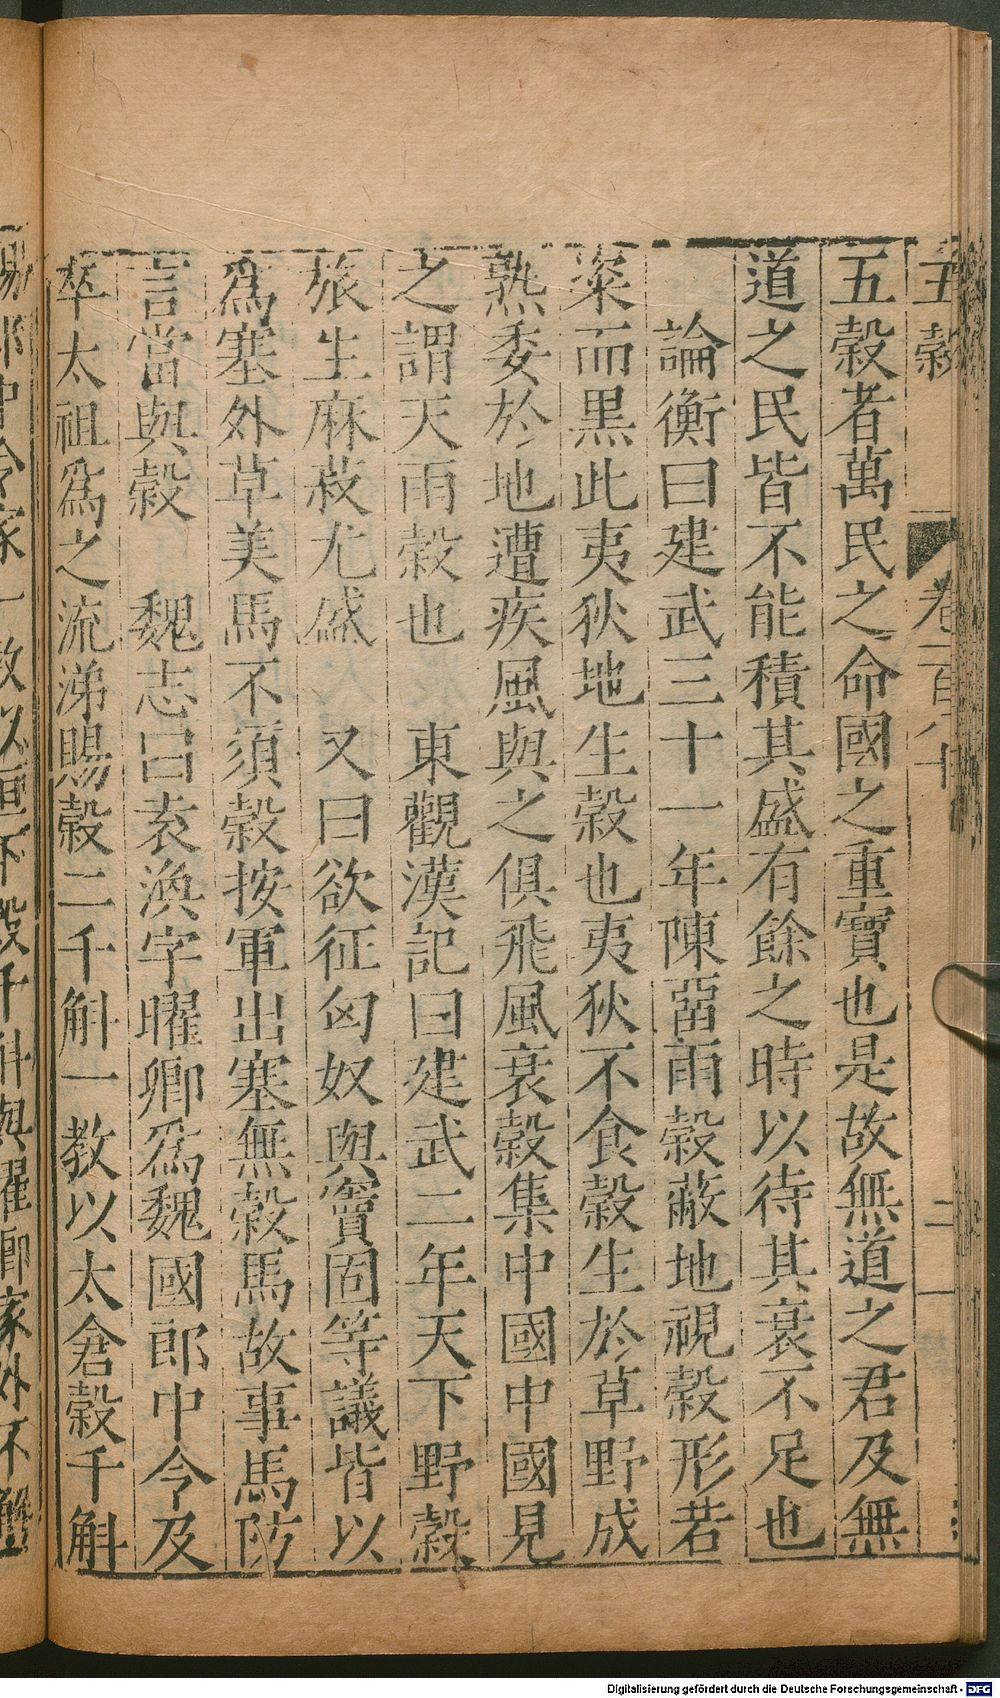 五穀
卷一百八十
二
五穀者萬民之命國之重寶也是故無道之君及無
道之民皆不能積其盛有餘之時以待其衰不足也
論衡曰建武三十一年陳留雨穀蔽地視穀形若
粢而黒此夷狄地生穀也夷狄不食穀生於草野成
熟委於地遭疾風與之俱飛風衰穀集中國中國見
之謂天雨穀也　東觀漢記曰建武二年天下野穀
旅生麻菽尤盛　又曰欲征匈奴與竇固等議皆以
爲塞外草美馬不須穀按軍出塞無穀馬故事馬防
言當與穀　魏志曰袁渙字曜卿爲魏國郎中令及
卒太祖爲之流涕賜穀二千斛一教以太倉穀千斛
賜郎中令家一教以垣下穀千斛與曜卿家外不解
Digitalisierung gefördert durch die Deutsche Forschungsgemeinschaft - DFG